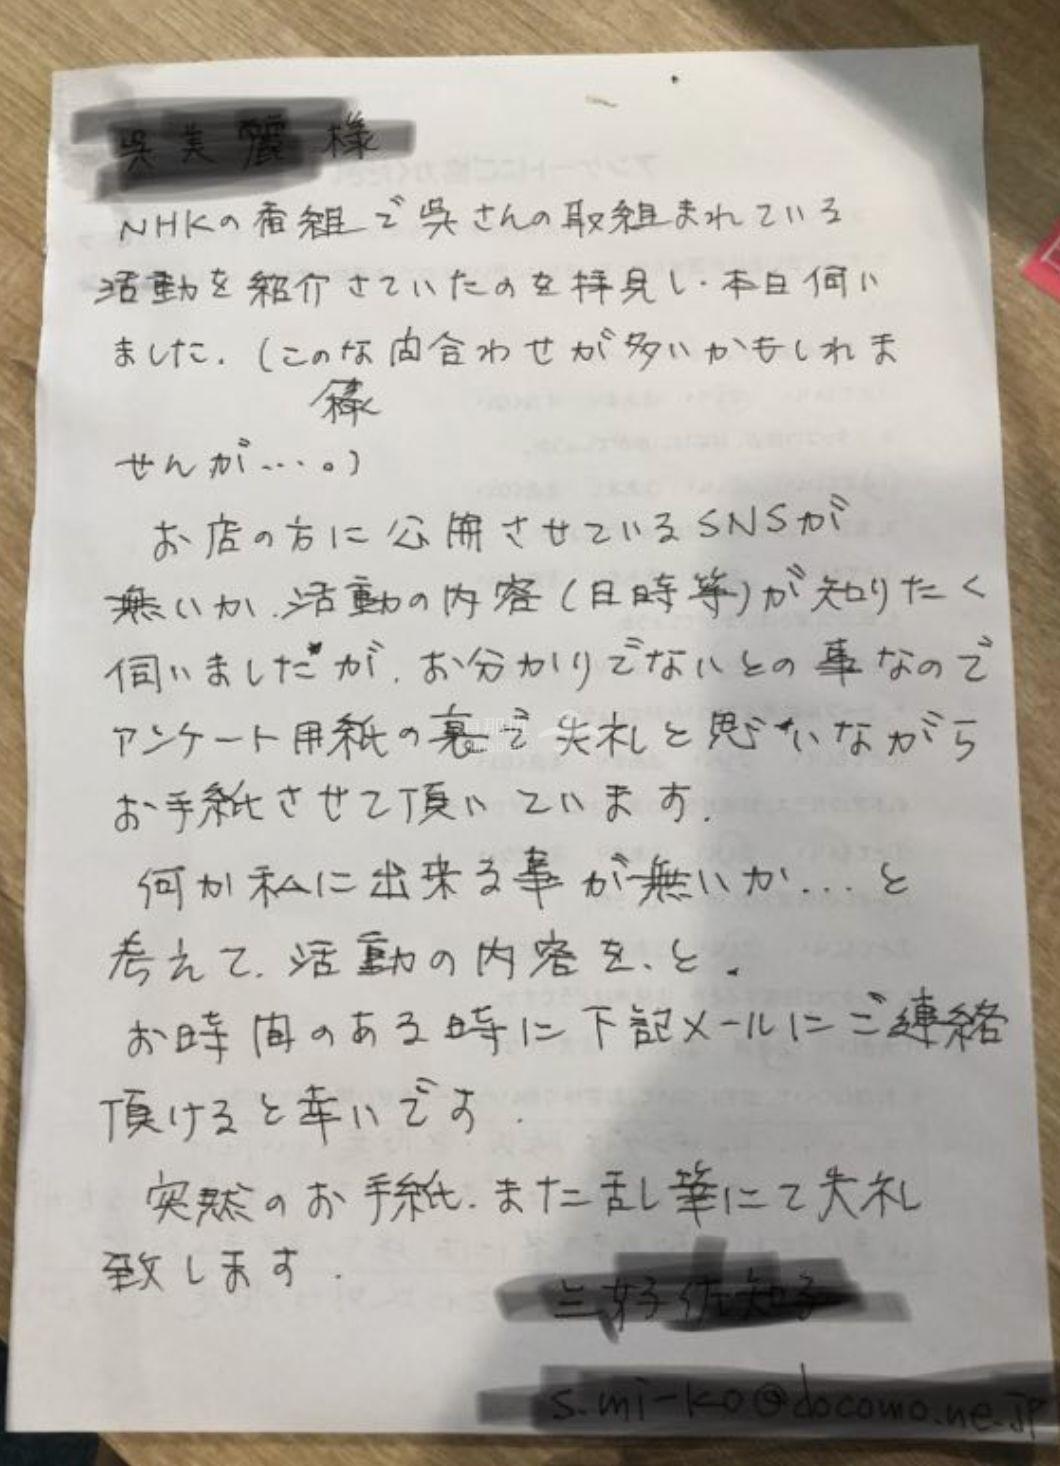 様
NHKの番組で呉さんの取組まれている
活動を紹介さていたのを拝見し、本日伺い
ました。(このな問合わせが多いかもしれま
様
せんが…。)
お店の方に公開させているSNSが
無いか、活動の内容(日時等)が知りたく
伺いましたが、お分かりでないとの事なので
アンケート用紙の裏で失礼と思いながら
お手紙させて頂いています。
何か私に出来る事が無いか…と
考えて、活動の内容を、と。
お時間のある時に下記メールにご連絡
頂けると幸いです。
突然のお手紙、また乱し筆にて失礼
致します。